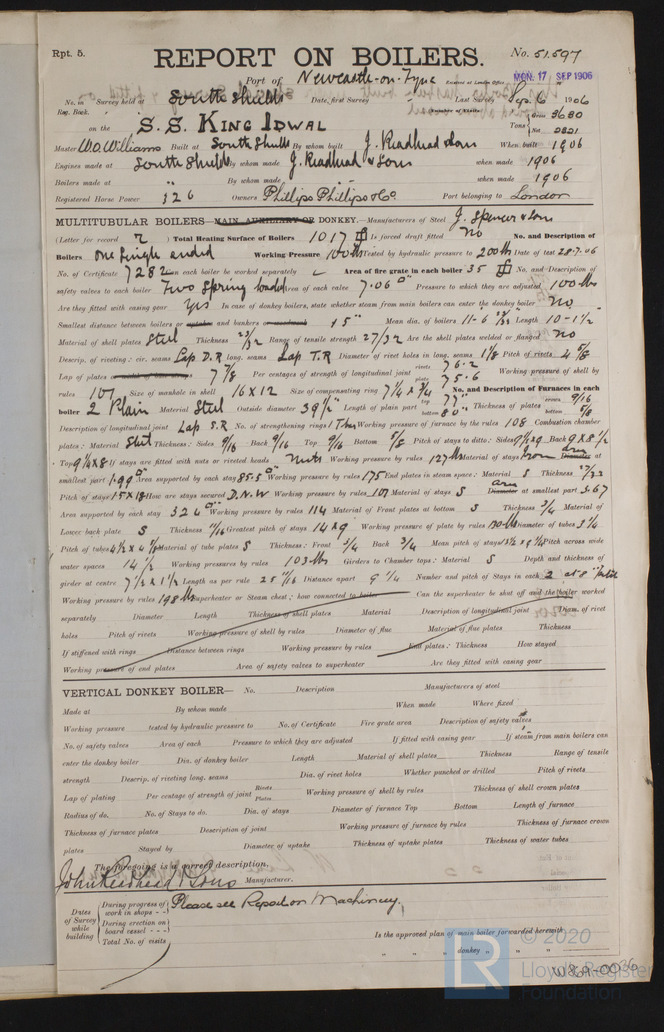 Rpt. 5.
REPORT ON BOILERS.
No. 51,597
Port of Newcastle-on-Tyne
Received at London Office MON. 17 SEP 1906
No. in Survey held at South Shields Date, first Survey Last Survey Sep. 6 1906
Reg. Book. (Number of Visits) Gross 3680
on the S.S. KING IDWAL Tons Net 2321
Master W.O. Williams Built at South Shields By whom built J. Readhead & Sons When built 1906
Engines made at South Shields By whom made J. Readhead & Sons when made 1906
Boilers made at " By whom made " when made 1906
Registered Horse Power 326 Owners Phillips Phillips & Co. Port belonging to London
MULTITUBULAR BOILERS— MAIN, AUXILIARY OR DONKEY.—Manufacturers of Steel J. Spencer & Sons
(Letter for record ) Total Heating Surface of Boilers 1017 Is forced draft fitted No No. and Description of
Boilers One Single ended Working Pressure 100 lbs Tested by hydraulic pressure to 200 lbs Date of test 28.7.06
No. of Certificate 7282 Can each boiler be worked separately Area of fire grate in each boiler 35 No. and Description of
safety valves to each boiler Two Spring loaded Area of each valve 7.06 Pressure to which they are adjusted 100 lbs
Are they fitted with easing gear Yes In case of donkey boilers, state whether steam from main boilers can enter the donkey boiler No
Smallest distance between boilers or uptakes and bunkers or woodwork 15" Mean dia. of boilers 11-6 Length 10-1½"
Material of shell plates Steel Thickness 23/32 Range of tensile strength 27/32 Are the shell plates welded or flanged No
Descrip. of riveting: cir. seams Lap D.R. long. seams Lap T.R. Diameter of rivet holes in long. seams 1⅛ Pitch of rivets 4⅝
Lap of plates or width of butt straps 7⅞ Per centages of strength of longitudinal joint rivets 76.2 plate 75.6 Working pressure of shell by
rules 107 Size of manhole in shell 16 x 12 Size of compensating ring 7¼ x ¾ No. and Description of Furnaces in each
boiler 2 Plain Material Steel Outside diameter 39½" Length of plain part top 77" bottom 80" Thickness of plates crown 9/16 bottom 5/8
Description of longitudinal joint Lap S.R. No. of strengthening rings Working pressure of furnace by the rules 108 Combustion chamber
plates: Material Steel Thickness: Sides 9/16 Back 9/16 Top 9/16 Bottom 5/8 Pitch of stays to ditto: Sides 9½ x 9 Back 9 x 8½
Top 9¼ x 8 If stays are fitted with nuts or riveted heads Nuts Working pressure by rules 127 lbs Material of stays Iron area Diameter at
smallest part 1.99 Area supported by each stay 85.5 Working pressure by rules 175 End plates in steam space: Material S Thickness
Pitch of stays 15 x 18 How are stays secured D.N.W Working pressure by rules 107 Material of stays S area Diameter at smallest part 3.67
Area supported by each stay 326 Working pressure by rules 114 Material of Front plates at bottom S Thickness 3/4 Material of
Lower back plate S Thickness 11/16 Greatest pitch of stays 14 x 9 Working pressure of plate by rules 130 lbs Diameter of tubes 3¼
Pitch of tubes Material of tube plates S Thickness: Front 3/4 Back 3/4 Mean pitch of stays Pitch across wide
water spaces 14½ Working pressures by rules 103 lbs Girders to Chamber tops: Material S Depth and thickness of
girder at centre 7½ x 1½ Length as per rule 25 11/16 Distance apart 9¼ Number and pitch of Stays in each 2 at 8" pitch
Working pressure by rules 198 lbs Superheater or Steam chest; how connected to boiler Can the superheater be shut off and the boiler worked
separately Diameter Length Thickness of shell plates Material Description of longitudinal joint Diam. of rivet
holes Pitch of rivets Working pressure of shell by rules Diameter of flue Material of flue plates Thickness
If stiffened with rings Distance between rings Working pressure by rules End plates: Thickness How stayed
Working pressure of end plates Area of safety valves to superheater Are they fitted with easing gear
VERTICAL DONKEY BOILER— No. Description Manufacturers of steel
Made at By whom made When made Where fixed
Working pressure tested by hydraulic pressure to No. of Certificate Fire grate area Description of safety valves
No. of safety valves Area of each Pressure to which they are adjusted If fitted with easing gear If steam from main boilers can
enter the donkey boiler Dia. of donkey boiler Length Material of shell plates Thickness Range of tensile
strength Descrip. of riveting long. seams Dia. of rivet holes Whether punched or drilled Pitch of rivets
Lap of plating Per centage of strength of joint Rivets Plates Working pressure of shell by rules Thickness of shell crown plates
Radius of do. No. of Stays to do. Dia. of stays Diameter of furnace Top Bottom Length of furnace
Thickness of furnace plates Description of joint Working pressure of furnace by rules Thickness of furnace crown
plates Stayed by Diameter of uptake Thickness of uptake plates Thickness of water tubes
The foregoing is a correct description,
John Readhead & Sons Manufacturer.
Dates of Survey while building
During progress of work in shops - -
During erection on board vessel - - -
Total No. of visits
Please see Report on Machinery.
Is the approved plan of main boiler forwarded herewith
" " " donkey " " "
© 2020
LR Lloyd's Register Foundation
W869-0036